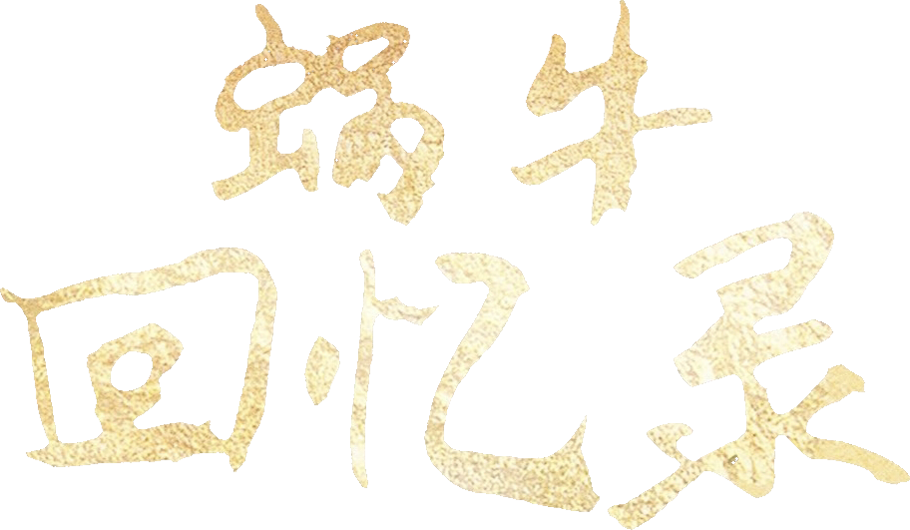 蜗牛
回忆录